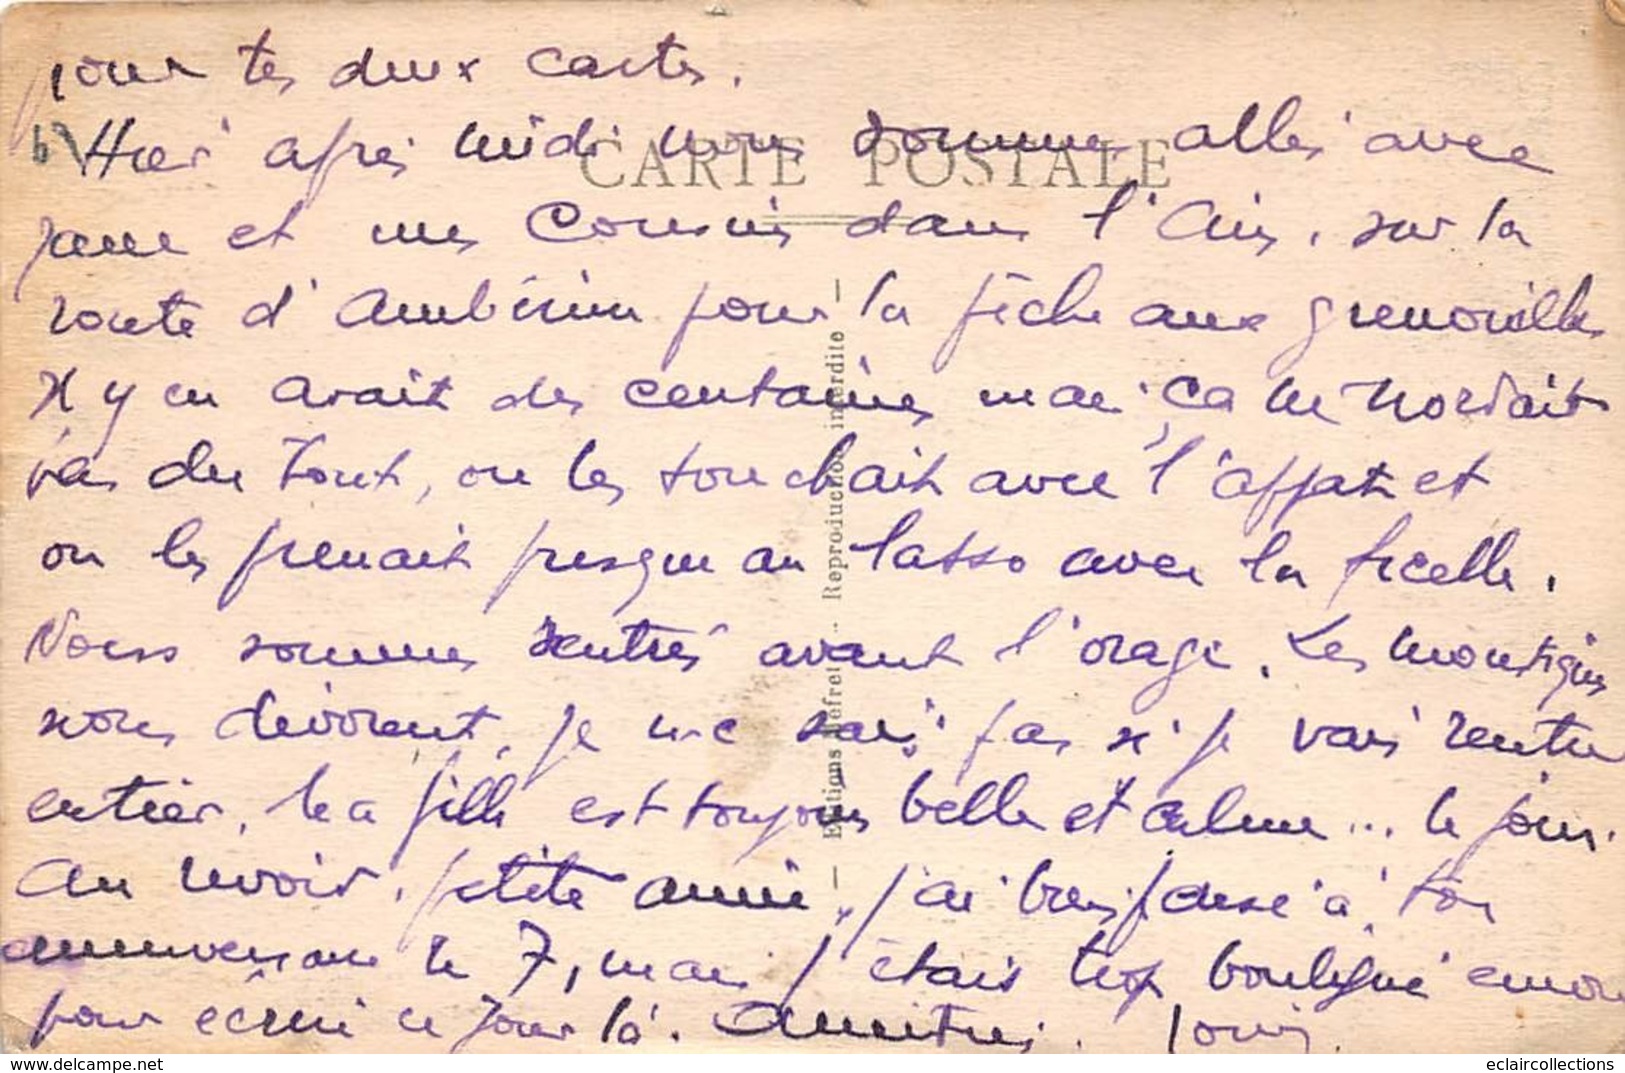 pour tes deux cartes.
Hier après midi nous sommes allés avec
CARTE POSTALE
et mes cousins dans l'Ain, sur la
route d'Ambérieu pour la pêche aux grenouilles
Il y en avait des centaines mais ça ne mordait
pas du tout, on les touchait avec l'appat et
on les prenait presque au lasso avec la ficelle.
Nous sommes rentrés avant l'orage. Les moustiques
nous dévorent, je ne sais pas si je vais rentrer
entier, la fille est toujours belle et calme... le jour.
Au revoir, petite amie, j'ai bien pensé à ton
anniversaire le 7, mais j'étais trop
pour écrire ce jour là. Amitiés. Louis
Editions - Reproduction interdite -
eclaircollections